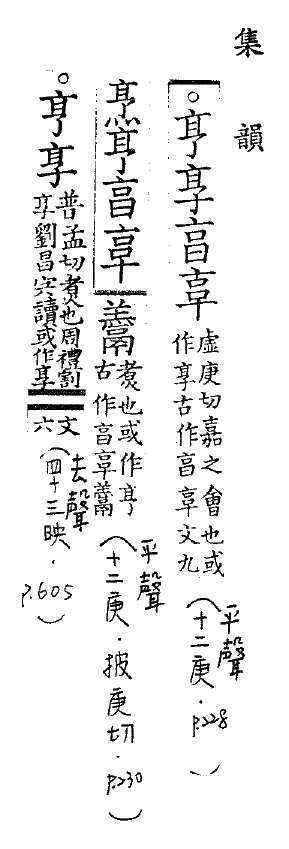 集韻
。亨享亯𦎫虛庚切嘉之會也或
作享古作亯𦎫文九
平聲
(十二庚.P.228)
𤈽亨亯𦎫鬺煮也或作亨
古作亯𦎫鬺
平聲
(十二庚.披庚切.P.230)
。亨享普孟切煮也周禮割
享劉昌宗讀或作享
文六
去聲
(四十三映.P.605)